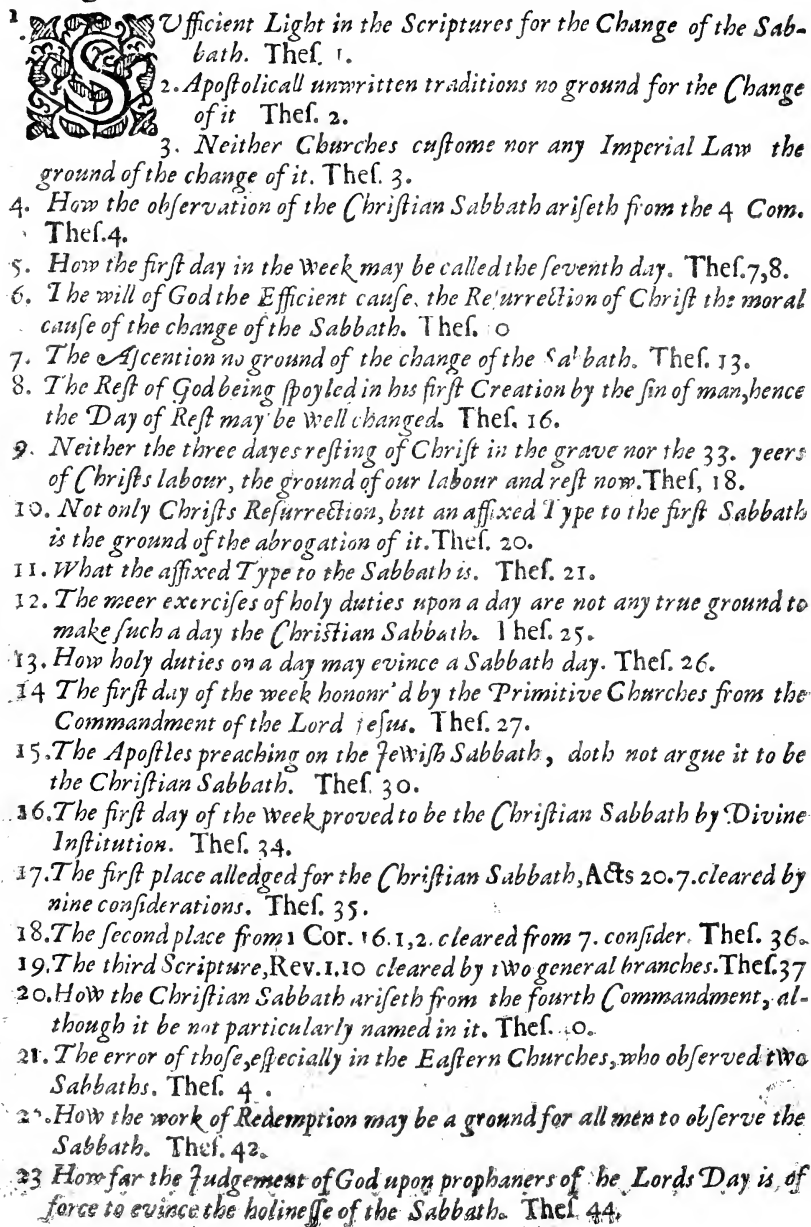 1. SUfficient Light in the Scriptures for the Change of the Sab-
bath. Theſ. 1.
2. Apoſtolicall unwritten traditions no ground for the Change
of it Theſ. 2.
3. Neither Churches cuſtome nor any Imperial Law the
ground of the change of it. Theſ. 3.
4. How the obſervation of the Chriſtian Sabbath ariſeth from the 4 Com.
Theſ.4.
5. How the firſt day in the Week may be called the ſeventh day. Theſ.7,8.
6. The will of God the Efficient cauſe, the Reſurrection of Chriſt the moral
cauſe of the change of the Sabbath. Theſ. 0
7. The Aſcention no ground of the change of the Sabbath. Theſ. 13.
8. The Reſt of God being ſpoyled in his firſt Creation by the ſin of man, hence
the Day of Reſt may be Well changed. Theſ. 16.
9. Neither the three dayes reſting of Chriſt in the grave nor the 33. yeers
of Chriſts labour, the ground of our labour and reſt now. Theſ, 18.
10. Not only Chriſts Reſurrection, but an affixed Type to the firſt Sabbath
is the ground of the abrogation of it. Theſ. 20.
11. What the affixed Type to the Sabbath is. Theſ. 21.
12. The meer exerciſes of holy duties upon a day are not any true ground to
make ſuch a day the Chriſtian Sabbath. Theſ. 25.
13. How holy duties on a day may evince a Sabbath day. Theſ. 26.
14 The firſt day of the week honour'd by the Primitive Churches from the
Commandment of the Lord jeſus. Theſ. 27.
15. The Apoſtles preaching on the Jewiſh Sabbath, doth not argue it to be
the Chriſtian Sabbath. Theſ. 30.
16. The firſt day of the Week proved to be the Chriſtian Sabbath by Divine
Inſtitution. Theſ. 34.
17. The firſt place alledged for the Chriſtian Sabbath, Acts 20.7. cleared by
nine conſiderations. Theſ. 35.
18. The ſecond place from 1 Cor. 16.1,2. cleared from 7. conſider. Theſ. 36.
19. The third Scripture, Rev.1.10 cleared by tWo general branches. Theſ.37
20. HoW the Chriſtian Sabbath ariſeth from the fourth Commandment, al-
though it be not particularly named in it. Theſ. 0.
21. The error of thoſe, eſpecially in the Eaſtern Churches, who obſerved tWo
Sabbaths. Theſ. 4 .
2 . How the work of Redemption may be a ground for all men to obſerve the
Sabbath. Theſ. 42.
23 How far the Judgement of God upon prophaners of he Lords Day is of
force to evince the holineſſe of the Sabbath. Theſ 44.